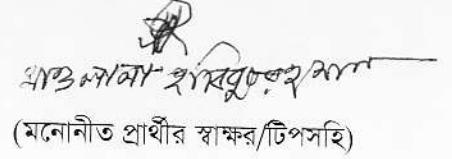 মাওলানা হাবিবুর রহমান
(মনোনীত প্রার্থীর স্বাক্ষর/টিপসহি)